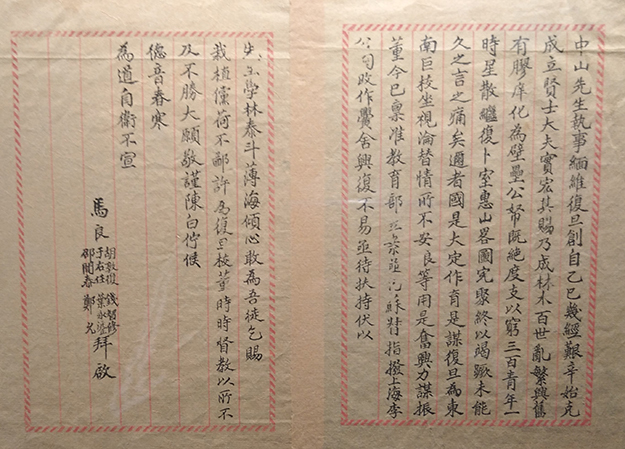 中山先生執事緬維復旦創自乙巳幾經艱辛始克
成立賢士大夫實宏其賜乃成林木百世亂繁興舊
有膠庠化為壁壘公帑既絶度支以窮三百青年一
時星散繼復卜室惠山畧圖完聚終以竭蹶未能
久之言之痛矣邇者國是大定作育是謀復旦為東
南巨校坐視淪替情所不安良等用是奮興力謀振
董今已稟准教育部立案並蘇指撥上海李
公祠改作黌舍興復不易亟待扶持伏以
先生學林泰斗薄海傾心敢為吾徒乞賜
栽植儻荷不鄙許為復旦校董時時督教以所不
及不勝大願敬謹陳白佇候
德音春寒
為道自衛不宣
馬良
胡敦復 錢智修
于右任 葉永鎏
邵聞泰 鄭允
拜啟